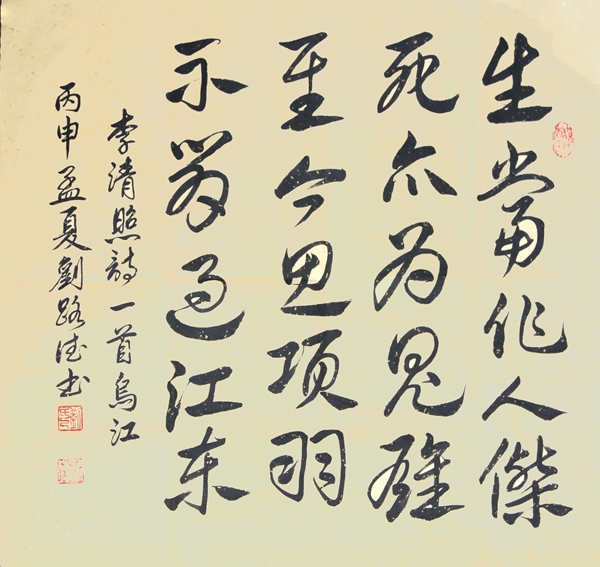 生當作人傑
死亦为鬼雄
至今思项羽
不肯过江东
李清照詩一首烏江
丙申孟夏劉路德书